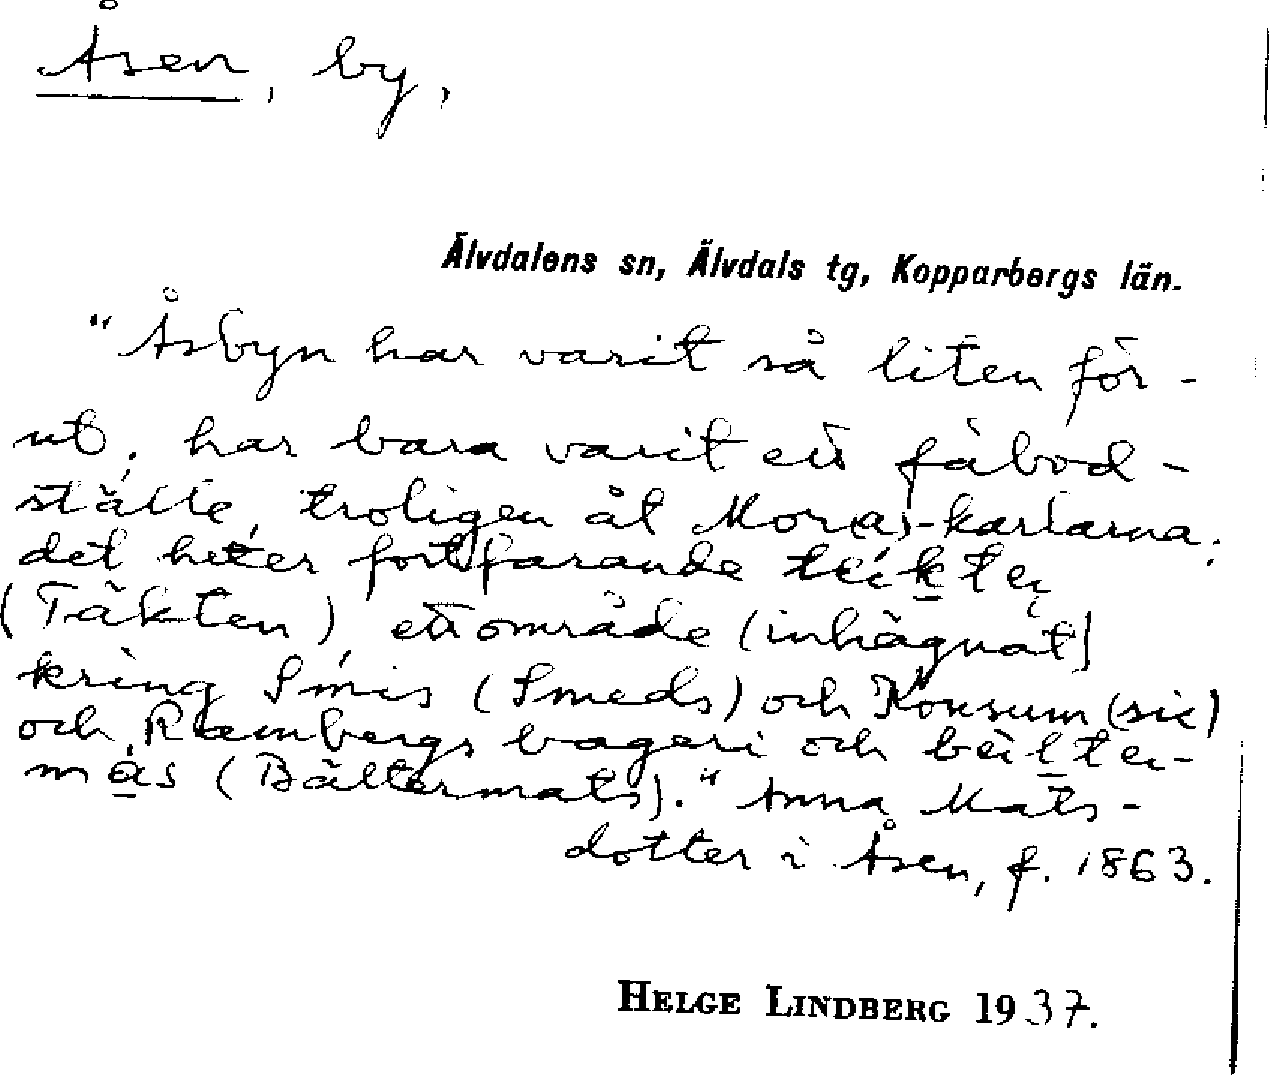 Åsen, by,
Älvdalens sn, Älvdals tg, Kopparbergs län.
"Åsbyn har varit så liten för-
ut, har bara varit ett fäbod-
ställe, troligen åt Mor(a)-karlarna;
det heter fortfarande
(Täkten), ett område (inhägnat)
kring Smis (Smeds) och Konsum (sic)
och Rambergs bageri och bèilter-
màs (Bältermats)." Anna Mats-
dotter i Åsen, f. 1863.
HELGE LINDBERG 1937.